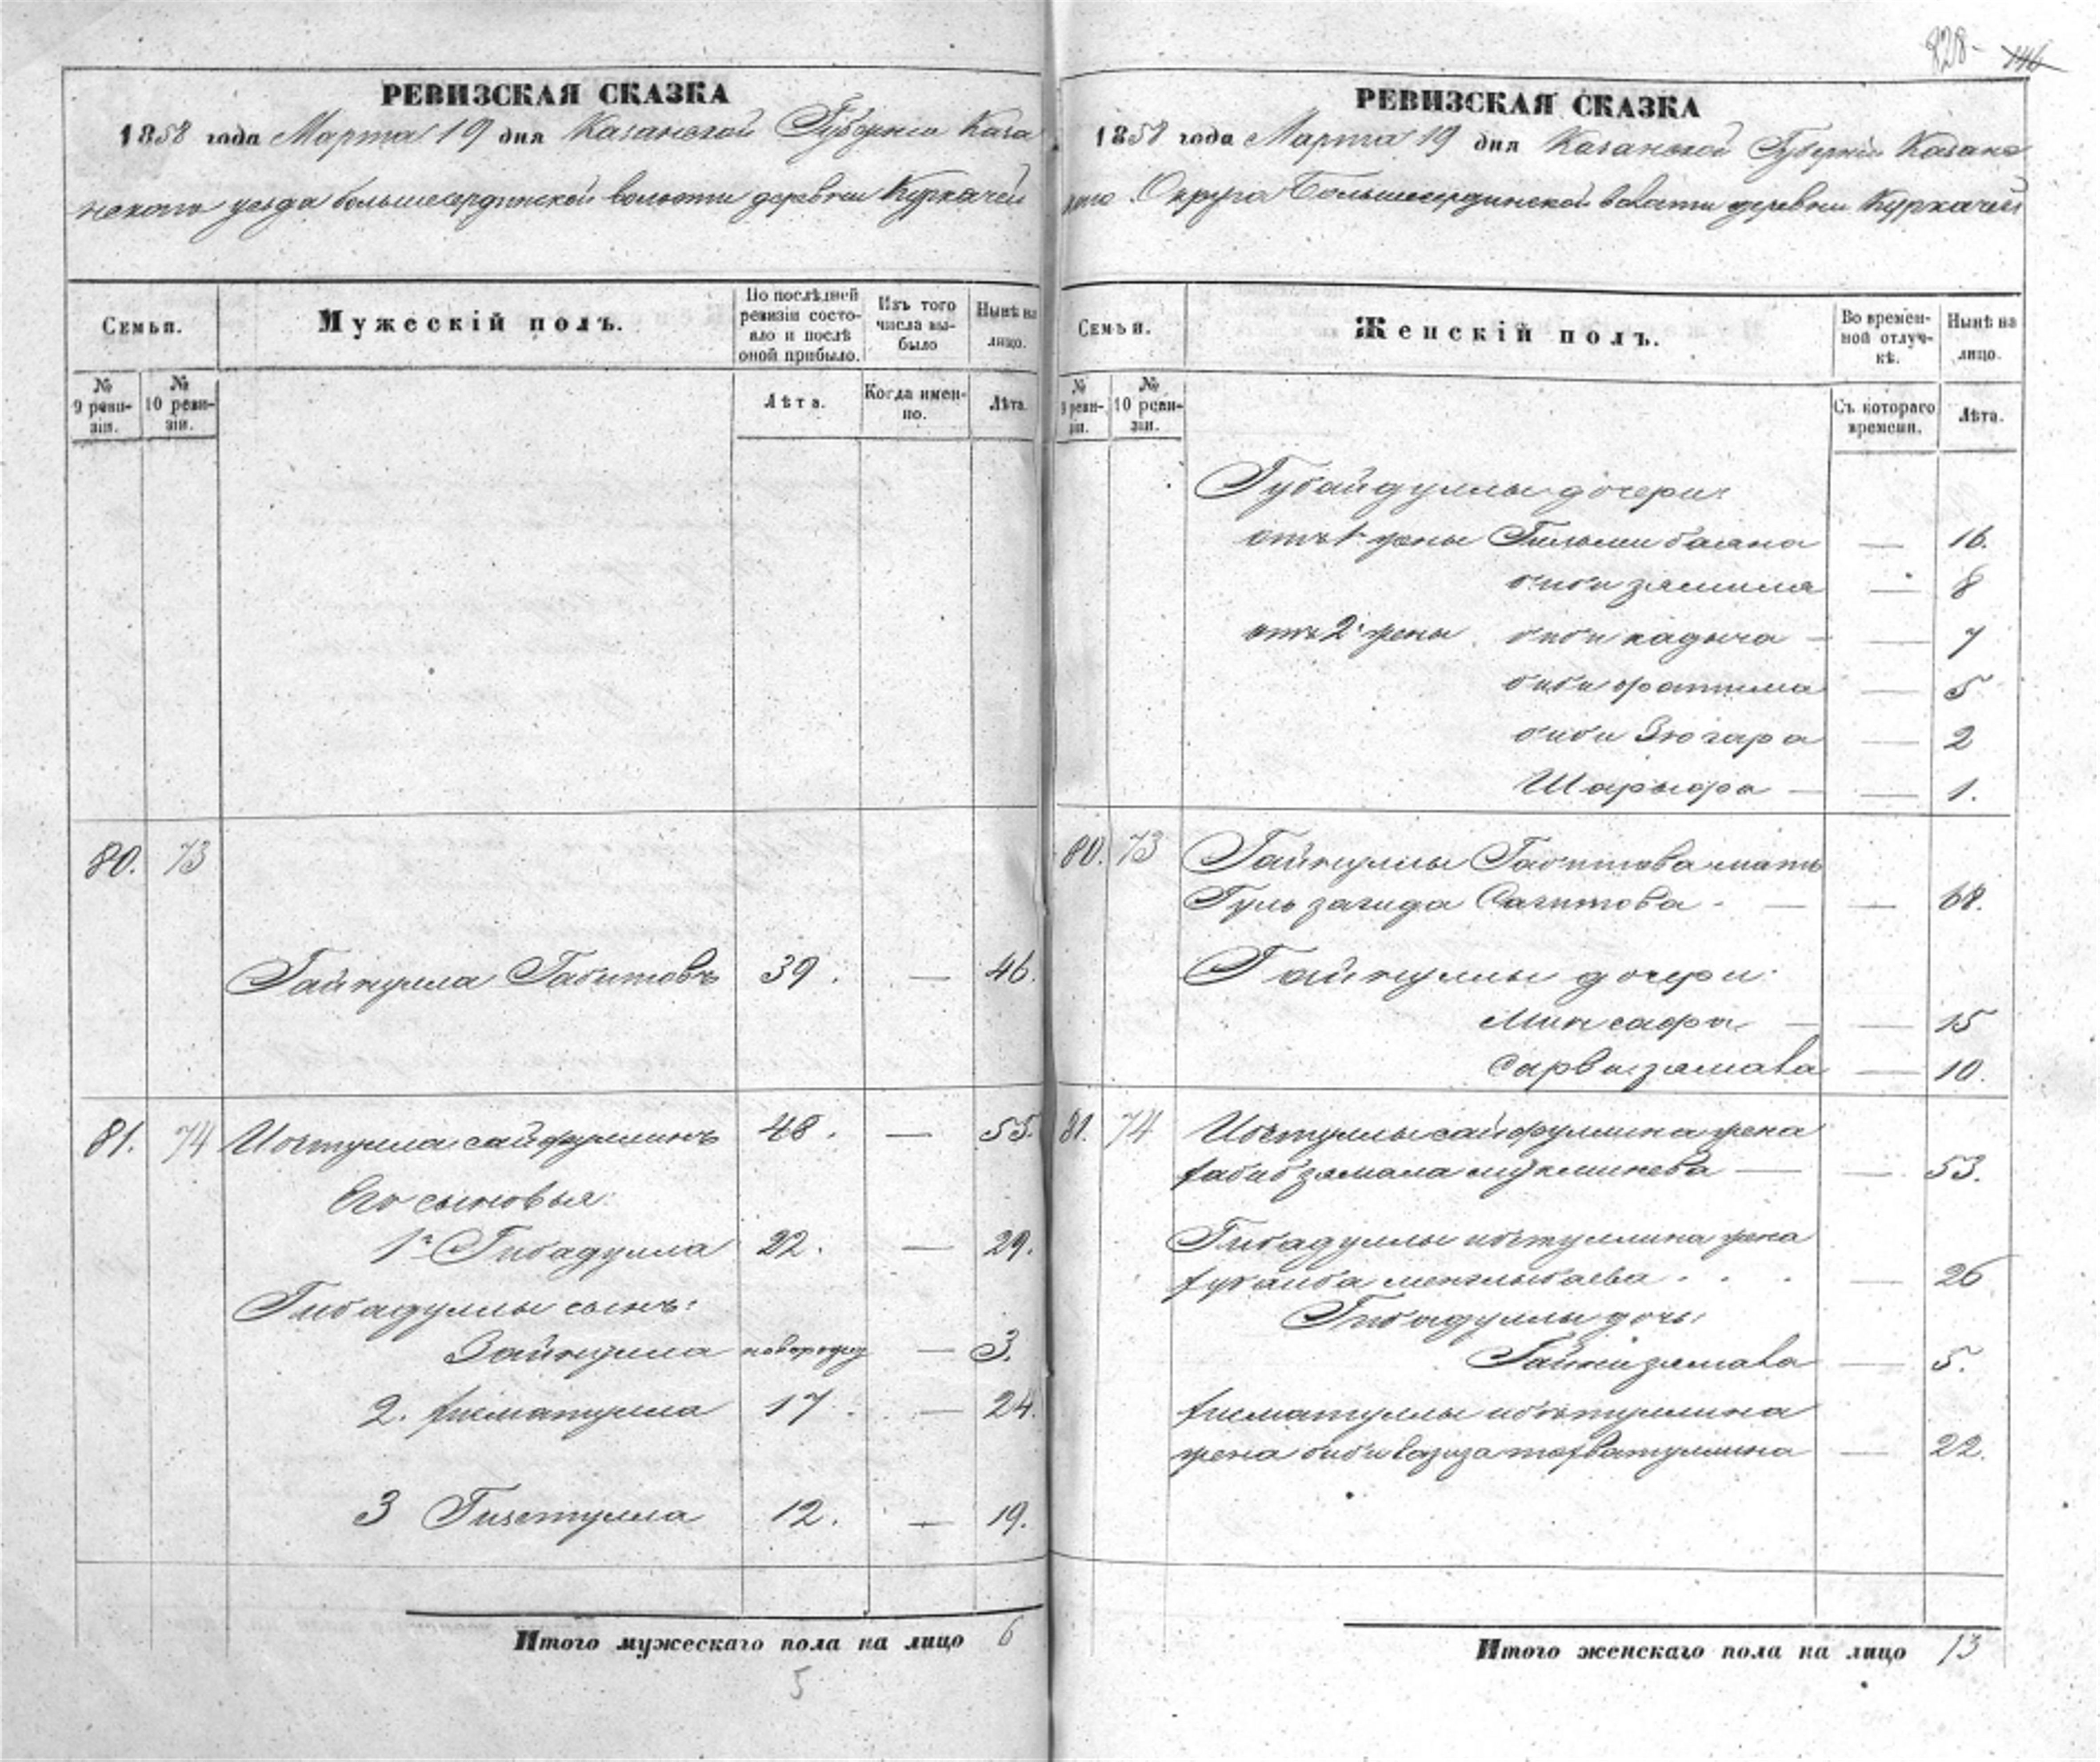 828 146
РЕВИЗСКАЯ СКАЗКА
1858 года Марта 19 дня Казанской Губернiи Каза
нскаго уезда большесердинской волости деревни Куркачей
Семьи.
Мужескiй полъ.
По послѣдней ревизiи состояло и послѣ оной прибыло.
Изъ того числа выбыло
Нынѣ на лицо.
№ 9 ревизiи.
№ 10 ревизiи.
Лѣта.
Когда именно.
Лѣта.
80. 73
Гайнулла Габитовъ 39. — 46.
81. 74 Иштулла сайфуллинъ 48. — 55.
Его сыновья:
1й Гибадулла 22. — 29.
Гибадуллы сынъ:
Зайнулла новорожд — 3.
2. Хисматулла 17. — 24.
3 Гизетулла 12. — 19.
Итого мужескаго пола на лицо 6
5
РЕВИЗСКАЯ СКАЗКА
1858 года Марта 19 дня Казанской Губернiи Казанс
каго Округа Большесердинской волости деревни Куркачей
Семьи.
Женскiй полъ.
Во временной отлучкѣ.
Нынѣ на лицо.
№ 9 ревизiи.
№ 10 ревизiи.
Съ котораго времени.
Лѣта.
Губайдуллы дочери:
отъ 1й жены Гильми баяна — 16.
биби зямиля — 8
отъ 2й жены биби кадыча — 7
биби фатима — 5
биби Зюгара — 2
Шарыфа — 1.
80. 73 Гайнуллы Габитова мать
Гуль загида Сагитова — 68.
Гайнуллы дочери:
Минсафа — 15
Сарвизямала — 10.
81. 74 Иштуллы сайфуллина жена
Хабибзямала мукминева — 53.
Гибадуллы иштуллина жена
менглыбаева — 26
Гибадуллы дочь:
Гайнизямала — 5.
Хисматуллы иштуллина
жена биби — 22.
Итого женскаго пола на лицо 13